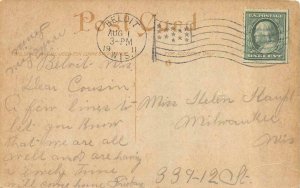 Post Card
BELOIT
AUG 1
3-PM
1911
WIS.
U.S. POSTAGE
ONE CENT
Beloit Wis
Dear Cousin
A few lines to
let you know
that we are all
well and are having
a lovely time
will come home Friday
Miss Helen Haupt
Milwaukee
Wis
339-12 St.